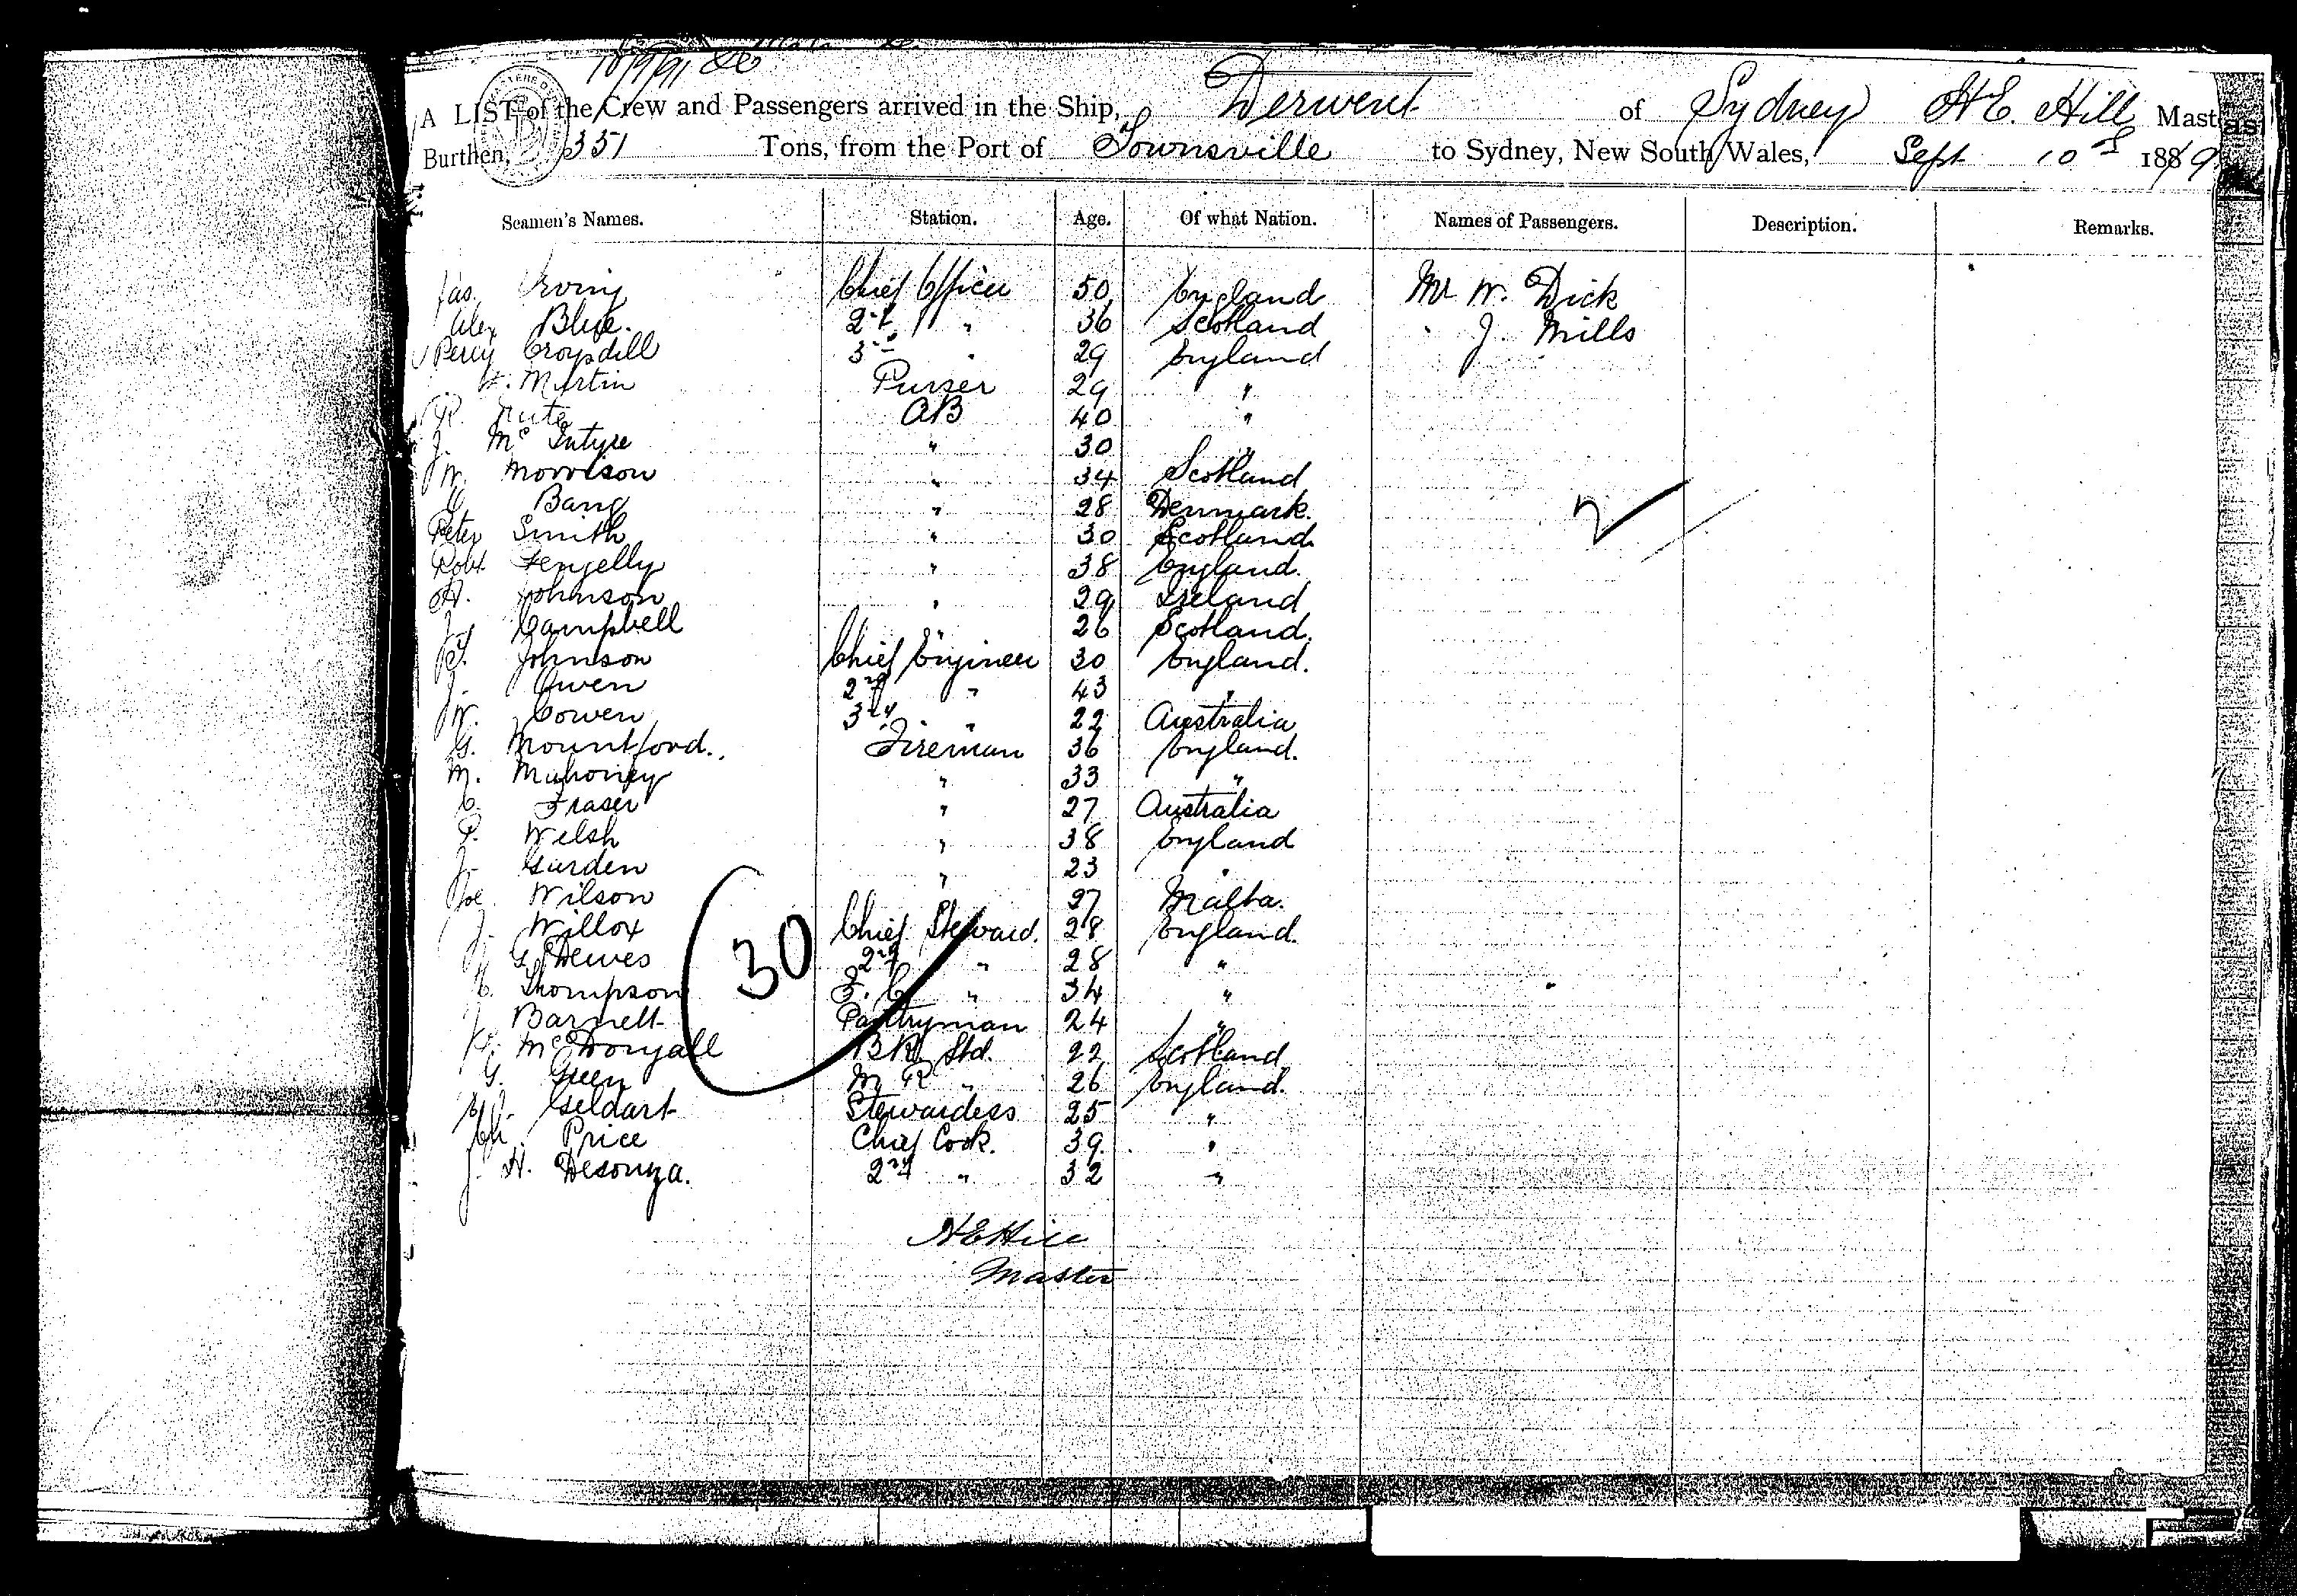 10/9/91
A LIST of the Crew and Passengers arrived in the Ship, Derwent of Sydney H E. Hill Mast
Burthen, 351 Tons, from the Port of Townsville to Sydney, New South Wales, Sept 10th 188/9
Seamen's Names. Station. Age. Of what Nation. Names of Passengers. Description. Remarks.
Jas. Irving Chief Officer 50 England Mr W. Dick
Alex Blue. 2nd " 36 Scotland " J. Mills
Percy Croysdill 3rd " 29 England
Martin Purser 29 "
R. Nute AB 40 "
J. Mc Intyre " 30 "
W. Morrison " 34 Scotland
Bang " 28 Denmark.
Peter Smith " 30 Scotland
Robt Fenjelly " 38 England.
A. Johnson " 29 Ireland
J. Campbell " 26 Scotland.
T. Johnson Chief Engineer 30 England.
J. Owen 2nd " 43 "
W. Cowen 3rd " 22 Australia
G. Mountford. Fireman 36 England.
M. Mahoney " 33 "
C. Fraser " 27 Australia
P. Welsh " 38 England
J. Garden " 23 "
Joe Wilson 27 Malta.
J. Willox Chief Steward. 28 England.
J. G. Dewes 2nd " 28 "
C. Thompson F. C. " 34 "
J. Barnell Pantryman 24 "
Mc Dougall BK Std. 22 Scotland
G. Green M R " 26 England.
Geldart Stewardess 25 "
Ch. Price Chief Cook. 39 "
J. H. Desouza. 2nd " 32 "
30
2
H E Hill
Master